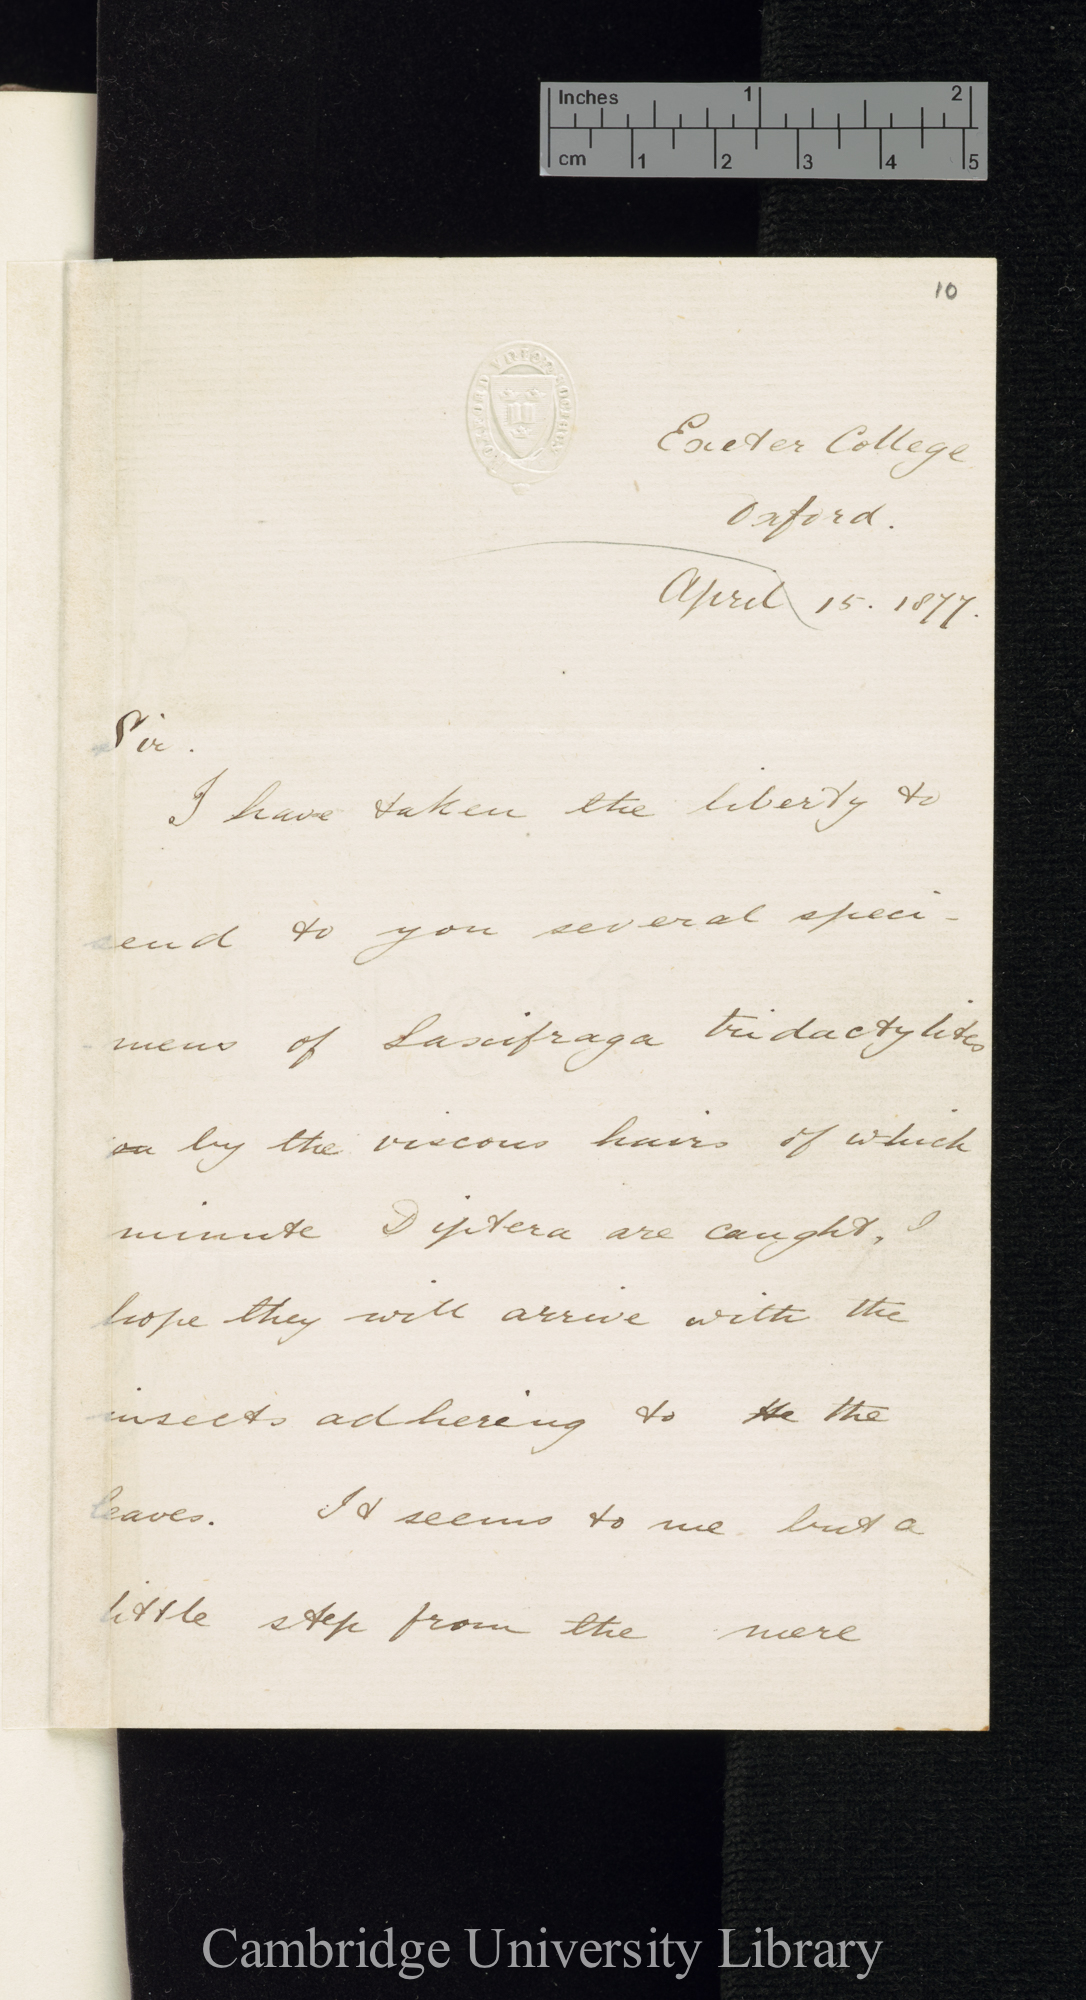 Inches 1 2
cm 1 2 3 4 5
10
Exeter College
Oxford.
April 15. 1877.
Sir.
I have taken the liberty to
send to you several speci-
mens of Saxifraga tridactylites
on by the viscous hairs of which
minute Diptera are caught, I
hope they will arrive with the
insects adhering to the the
leaves. It seems to me but a
little step from the mere
Cambridge University Library